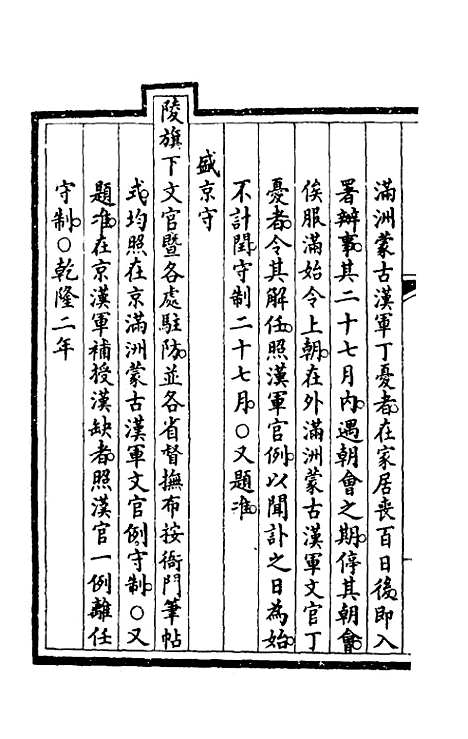 滿洲蒙古漢軍丁憂者在家居喪百日後即入
署辦事其二十七月內遇朝會之期停其朝會
俟服滿始令上朝在外滿洲蒙古漢軍文官丁
憂者令其解任照漢軍官例以聞訃之日為始
不計閏守制二十七月○又題准
盛京守
陵旗下文官暨各處駐防並各省督撫布按衙門筆帖
式均照在京滿洲蒙古漢軍文官例守制○又
題准在京漢軍補授漢缺者照漢官一例離任
守制○乾隆二年